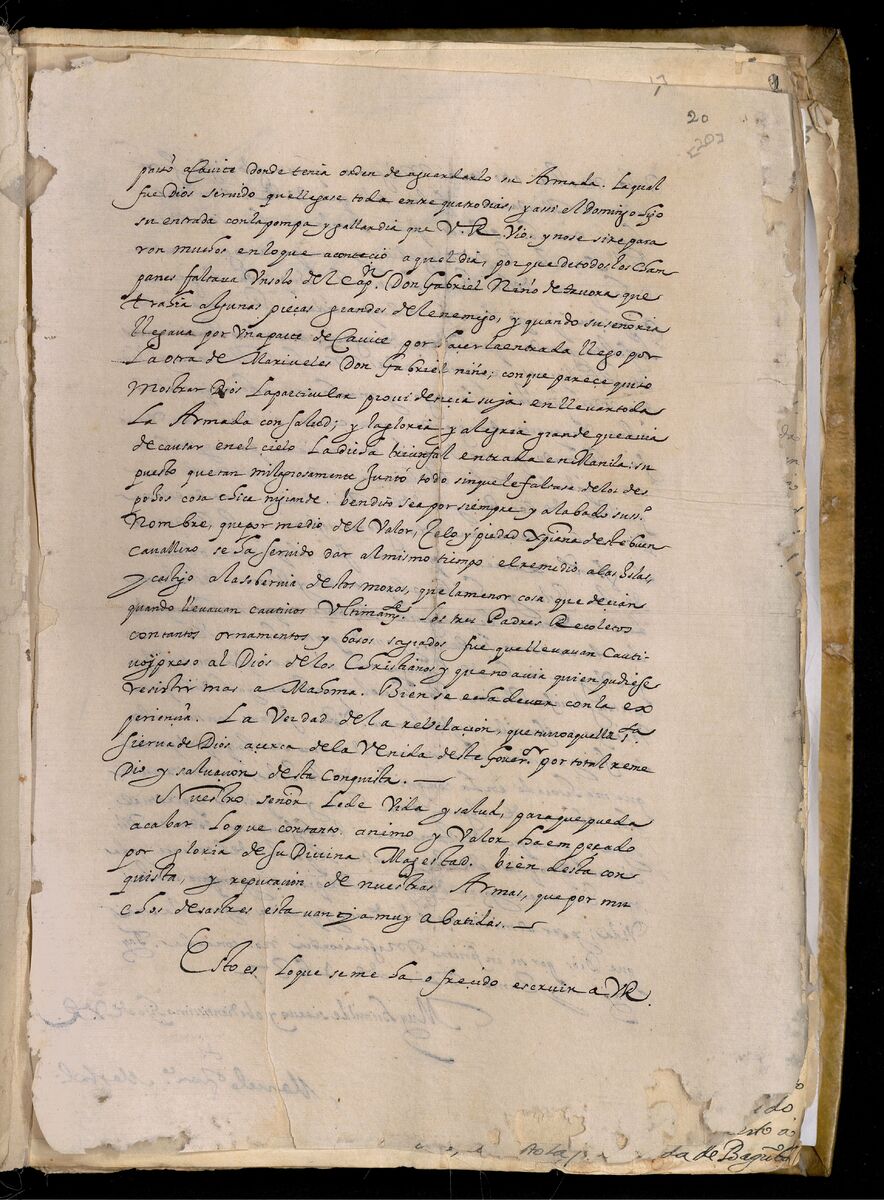 20
[20]
passó a Cavite donde tenia orden de aguardarlo su Armada. La qual
fue Dios servido que llegase toda entre quatro dias, y assi el Domingo hizo
su entrada con la pompa y gallardia que V. R. Vio. y no se si repara
ron muchos en lo que aconteció aquel dia, porque de todos los Cham
panes faltava Un solo del Cap.n Don Gabriel Niño de tavora que
trahia algunas pieças grandes del enemigo, y quando su señoria
llegava por Una parte de Cavite por hacer la entrada llego por
La otra de Mariveles Don Gabriel niño; con que parece quiso
Mostrar Dios La particular providencia suya, en llevar toda
La Armada con salud; y la gloria y alegria grande que avia
de causar en el cielo La dicha triunfal entrada en Manila: su
puesto que tan milagrosamente Juntó todo sin que le faltase de los des
pojos cosa chica ni grande. bendito sea por siempre y alabado su ss.o
Nombre, que por medio del Valor, Zelo y piedad Xpiana deste buen
Cavallero se ha servido dar al mismo tiempo el remedio a las Islas,
y castigo a la sobervia destos moros, que la menor cosa que decian
quando llevavan cautivos Ultimam.te los tres Padres Recoletos
con tantos ornamentos y basos sagrados fue que llevavan Cauti-
vo y preso al Dios de los Christianos y que no avia quien pudiese
resistir mas a Mahoma. Bien se echa de ver con la ex
periencia. La Verdad de la revelacion, que tuvo aquella s.ta
sierva de Dios acerca de la Venida deste Gover.or por total reme
dio y salvacion desta Conquista. —
Nuestro señor Le de Vida y salud, para que pueda
acabar Lo que con tanto animo y Valor ha empeçado
por gloria de su Divina Magestad. bien desta con
quista, y reputacion de nuestras Armas, que por mu
chos desastres estavan ya muy abatidas. —
Esto es Lo que se me ha ofrecido escrivir a VR.
da de Bag